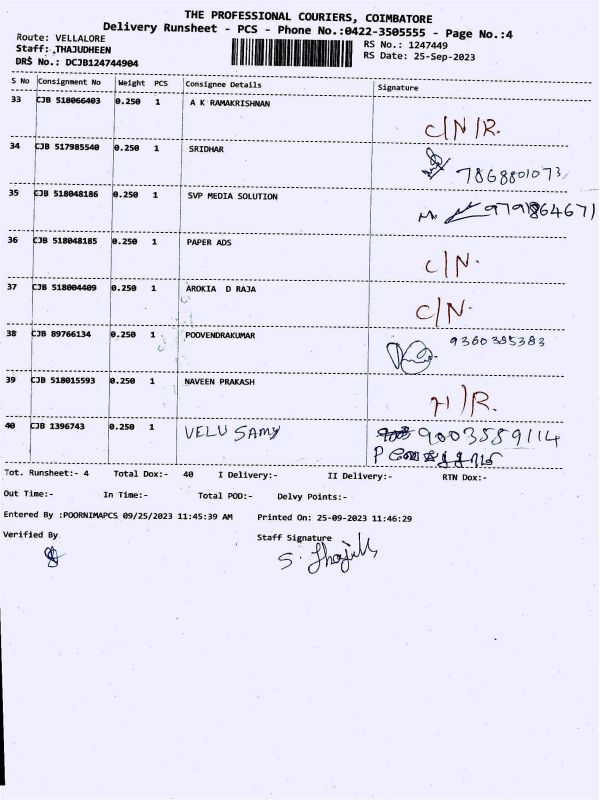 THE PROFESSIONAL COURIERS, COIMBATORE
Delivery Runsheet - PCS - Phone No.:0422-3505555 - Page No.:4
Route: VELLALORE
RS No.: 1247449
Staff: THAJUDHEEN
RS Date: 25-Sep-2023
DRS No.: DCJB124744904
S No Consignment No Weight PCS Consignee Details Signature
33 CJB 518066403 0.250 1 A K RAMAKRISHNAN
C/N/R.
34 CJB 517985540 0.250 1 SRIDHAR
7868801073
35 CJB 518048186 0.250 1 SVP MEDIA SOLUTION
9791864671
36 CJB 518048185 0.250 1 PAPER ADS
C/N.
37 CJB 518004409 0.250 1 AROKIA D RAJA
C/N.
38 CJB 89766134 0.250 1 POOVENDRAKUMAR
9360385383
39 CJB 518015593 0.250 1 NAVEEN PRAKASH
H/R.
40 CJB 1396743 0.250 1 VELU SAMY
9003589114
Tot. Runsheet:- 4 Total Dox:- 40 I Delivery:- II Delivery:- RTN Dox:-
Out Time:- In Time:- Total POD:- Delvy Points:-
Entered By :POORNIMAPCS 09/25/2023 11:45:39 AM Printed On: 25-09-2023 11:46:29
Verified By Staff Signature